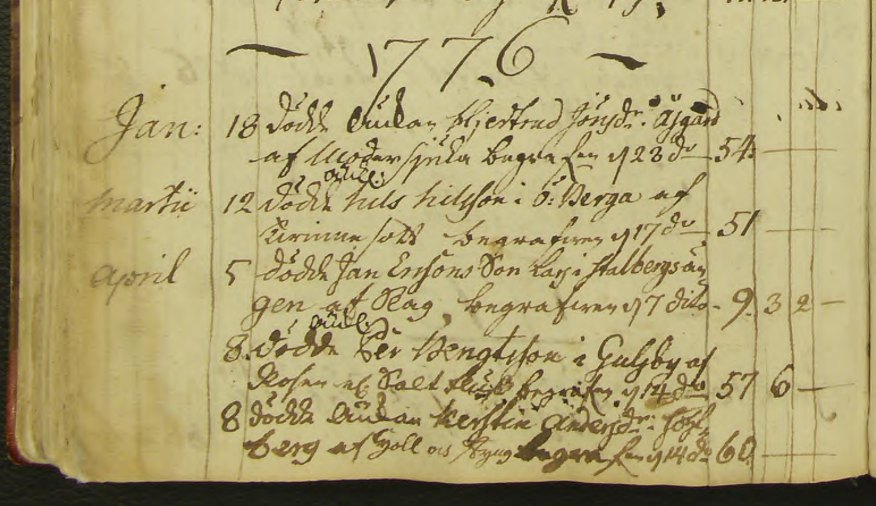 1776
Jan: 18 Dödde Änkan Hjertrud Jönsdr. Äsgård
af Moder siuka begrafen d 23 do 54
Martii 12 Dödde Nils Nilsson i Ö: Berga af
begrafven d 17 do 51
April 5 Dödde Jan Ersons Son Lars i Stalbergsän
gen af Slag, begrafven d 7 dito 9. 3 2
8. dödde Per Bengtsson i Gulsby af
Rosen begrafen d 14 do 57 6
8 dödde Änkan Kerstin Andersdr.
berg af Håll och Styng begrafen d 14 do 60.